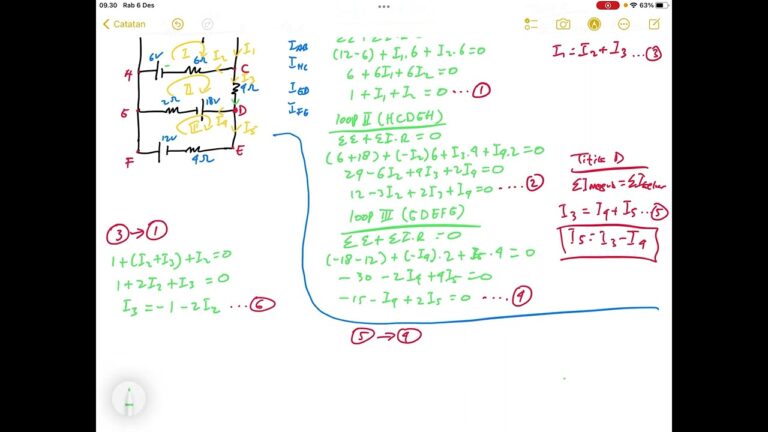 09.30 Rab 6 Des
63%
Catatan
6V
6Ω
I
I1
I2
A
C
I3
II
4Ω
2Ω
18V
G
D
III
I4
I5
12V
F
4Ω
E
IAB
IHC
IGD
IFE
(12-6) + I1.6 + I2.6 = 0
6 + 6I1 + 6I2 = 0
1 + I1 + I2 = 0 ....①
loop II (HCDGH)
ΣE + ΣI.R = 0
(6+18) + (-I2)6 + I3.4 + I4.2 = 0
24 - 6I2 + 4I3 + 2I4 = 0
12 - 3I2 + 2I3 + I4 = 0 ....②
loop III (GDEFG)
ΣE + ΣI.R = 0
(-18-12) + (-I4).2 + I5.4 = 0
-30 - 2I4 + 4I5 = 0
-15 - I4 + 2I5 = 0 ....④
⑤ → ④
I1 = I2 + I3 ...③
Titik D
ΣImasuk = ΣIkeluar
I3 = I4 + I5 ...⑤
I5 = I3 - I4
③ → ①
1 + (I2 + I3) + I2 = 0
1 + 2I2 + I3 = 0
I3 = -1 - 2I2 ....⑥